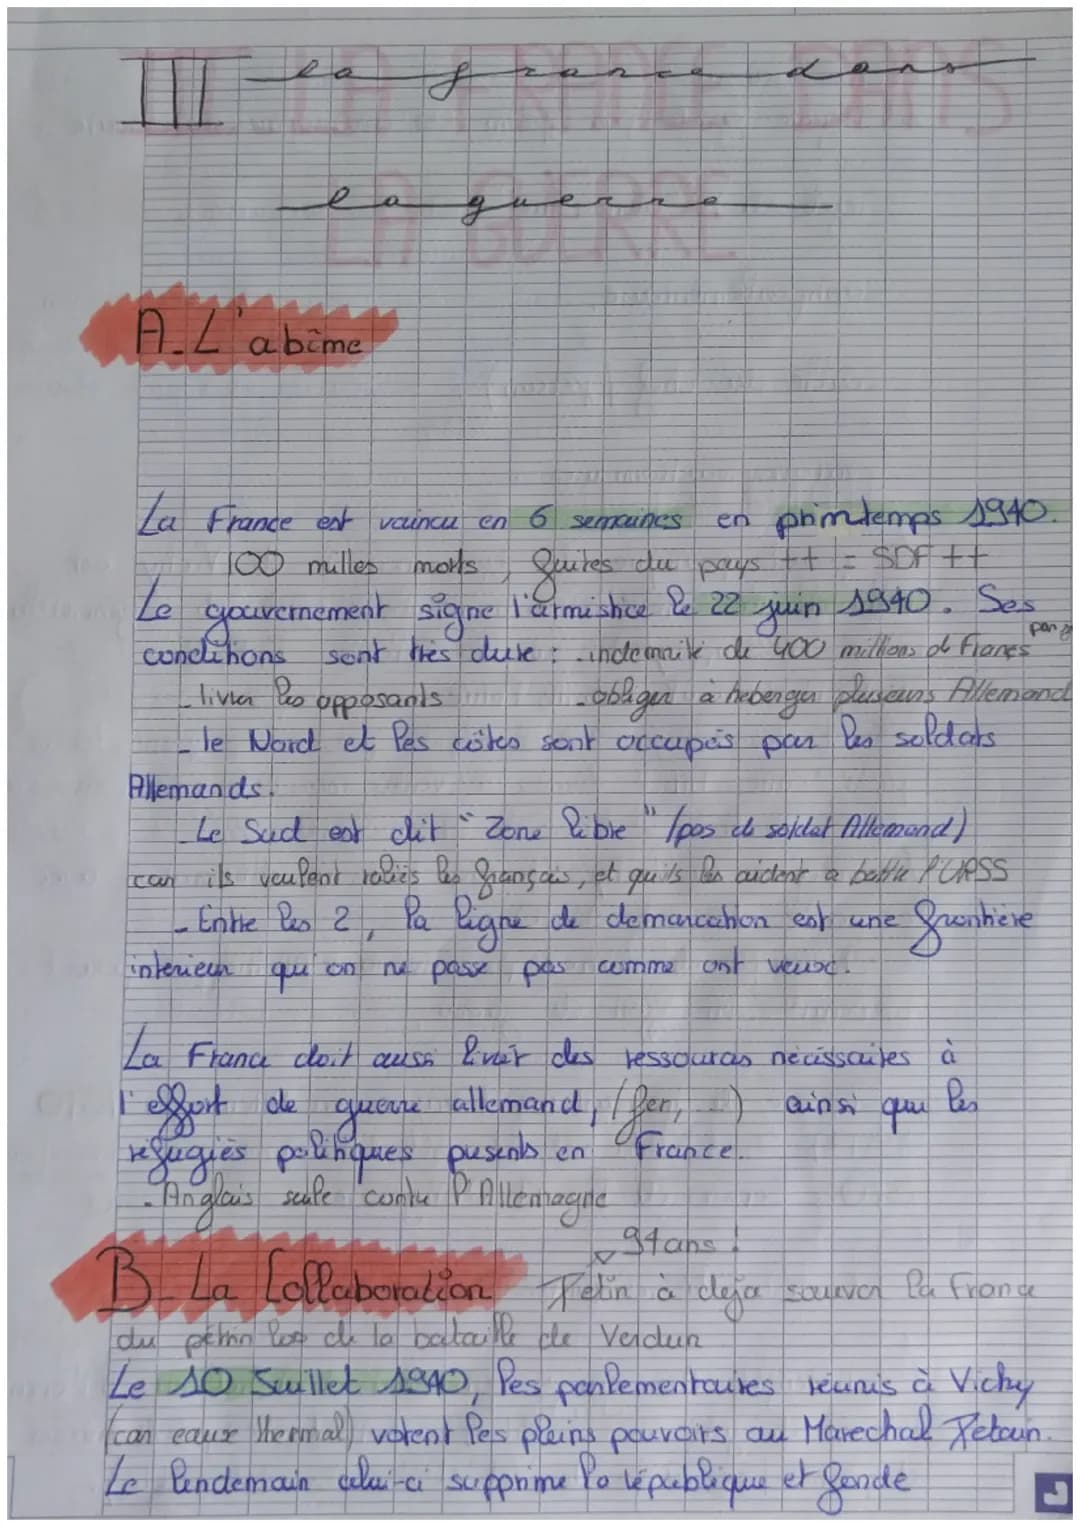 III la france dans
la guerre
A. L'abîme
La France est vaincu en 6 semaines en primtemps 1940.
100 milles morts, fuites du pays ++ = SDF ++
Le gouvernement signe l'armistice le 22 juin 1940. Ses
conditions sont très dure : - indemnité de 400 millions de Francs
- livrer les opposants - obliger à heberger plusieurs Allemand
- le Nord et les côtes sont occupés par les soldats
Allemands.
- Le Sud est dit "Zone libre" (pas de soldat Allemand)
car ils veulent les français, et qu'ils les aident a battre l'URSS
- Entre les 2, la ligne de demarcation est une frontière
interieur qu'on ne passe pas comme ont veux.
La France doit aussi livrer des ressources nécissaires à
l'effort de guerre allemand, (fer, ...) ainsi que les
refugiés politiques présents en France.
- Anglais seule contre l'Allemagne
B - La Collaboration
94 ans !
Petin à deja sauver la France
du pétrin lors de la bataille de Verdun
Le 10 Juillet 1940, les parlementaires réunis à Vichy
(car eaux thermal) votent les pleins pouvoirs au Marechal Petain.
Le lendemain celui-ci supprime la république et fonde